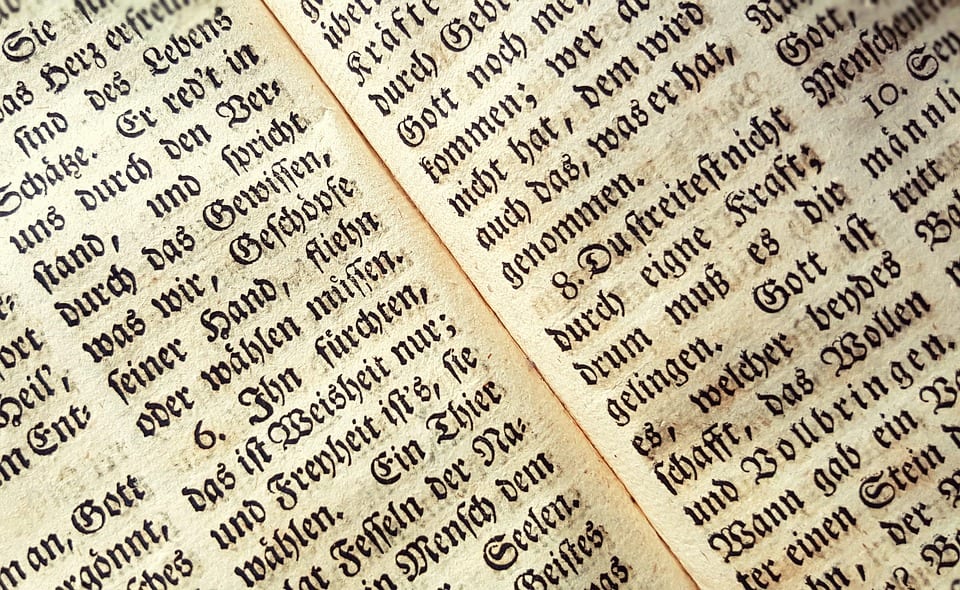 ort
Heil',
Gott
Sie
das Herz
sind des Lebens
Schätze. Er red't in
uns durch den Ver:
stand, und spricht
durch das Gewissen,
was wir, Geschöpfe
seiner Hand, fliehn
oder wählen müssen.
6. Ihn fürchten,
das ist Weisheit nur;
und Freyheit ist's, sie
wählen. Ein Thier
Fesseln der Na:
Mensch dem
Seelen.
Geistes
Kräfte
durch
Gott noch
kommen; wer
nicht hat, dem wird
auch das, was er hat,
genommen.
8. Du streitest nicht
durch eigne Kraft;
drum muß es dir
gelingen. Gott ist
es, welcher beydes
schafft, das Wollen
und Vollbringen.
Wann gab ein
ter einen Stein
der
Gott,
10.
männli
tritt